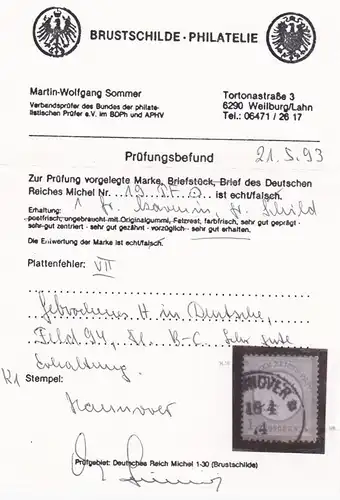 BRUSTSCHILDE · PHILATELIE
Martin-Wolfgang Sommer
Verbandsprüfer des Bundes der philate-
listischen Prüfer e.V. im BDPh und APHV
Tortonastraße 3
6290 Weilburg/Lahn
Tel.: 06471 / 26 17
Prüfungsbefund 21.5.93
Zur Prüfung vorgelegte Marke, Briefstück, Brief des Deutschen
Reiches Michel Nr. 19 ist echt/falsch.
Erhaltung: Schild
postfrisch, ungebraucht mit Originalgummi, Falzrest, farbfrisch, sehr gut geprägt -
sehr gut zentriert - sehr gut gezähnt - vorzüglich - sehr gut erhalten.
Die Entwertung der Marke ist echt/falsch.
Plattenfehler: VII
gebrochenes H in Deutsche,
Feld 94, B-C. Sehr gute
Erhaltung.
K1 Stempel:
Hannover
Prüfgebiet: Deutsches Reich Michel 1-30 (Brustschilde)